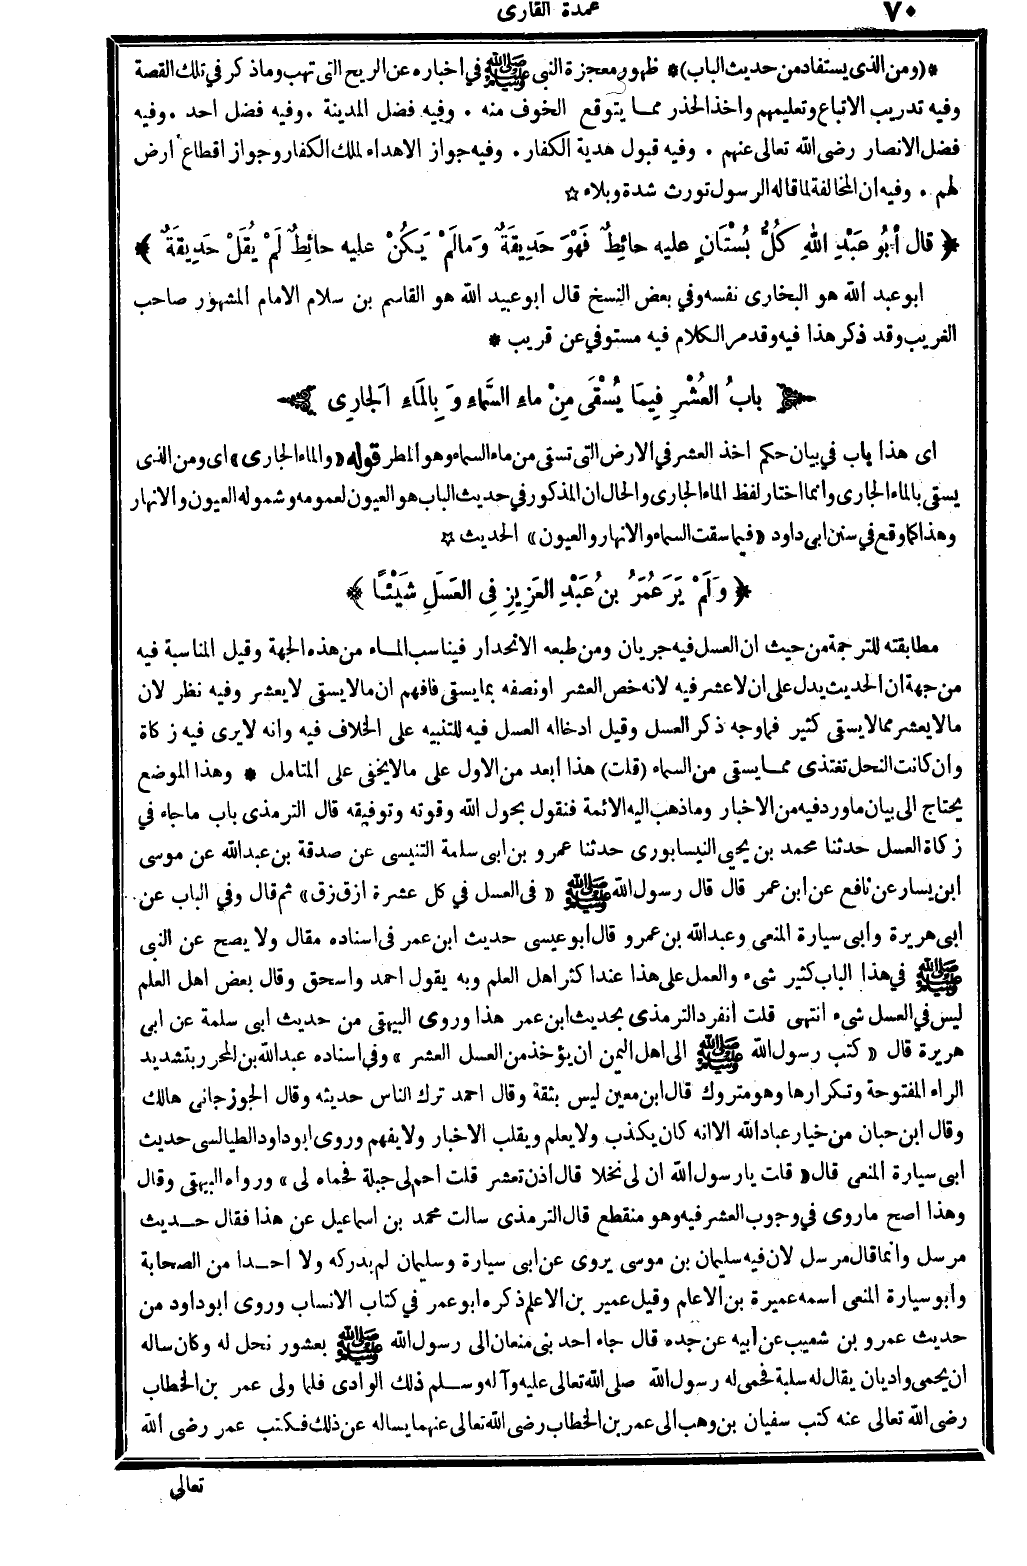 ٧٠
عمدة القارى
* (ومن الذى يستفاد من حديث الباب) * ظهور معجزة النبي ﷺ في اخباره عن الريح التي تهب وماذكر في تلك القصة
وفيه تدريب الاتباع وتعليمهم واخذ الحذر ممـا يتوقع الخوف منه . وفيه فضل المدينة . وفيه فضل احد . وفيه
فضل الانصار رضى الله تعالى عنهم . وفيه قبول هدية الكفار . وفيه جواز الاهداء لملك الكفار وجواز اقطاع أرض
لهم . وفيه ان المخالفة لما قاله الرسول تورث شدة وبلاء ☆
﴿ قال أبُو عَبْدِ اللهِ كُلُّ بُسْتَانٍ عليه حائِطٌ فَهْوَ حَدِيقَةٌ وَمالَمْ يَـكُنْ عليه حائِطٌ لَمْ يُقَلْ حَدِيقَةٌ ﴾
ابو عبد الله هو البخارى نفسه وفي بعض النسخ قال ابو عبيد الله هو القاسم بن سلام الامام المشهور صاحب
الغريب وقد ذكر هذا فيه وقد مر الكلام فيه مستوفي عن قريب *
بابُ العُشْرِ فِيمَا يُسْقَى مِنْ ماءِ السَّماءِ وَ بِالمَاءِ الجارِى
اى هذا باب في بيان حكم اخذ العشر في الارض التى تسقى من ماء السماء وهو المطر قوله «والماء الجارى» اى ومن الذى
يسقى بالماء الجارى وانما اختار لفظ الماء الجارى والحال ان المذكور في حديث الباب هو العيون لعمومه وشموله العيون والانهار
وهذا كما وقع في سنن ابى داود «فيما سقت السماء والانهار والعيون» الحديث ☆
﴿ وَلَمْ يَرَ عُمَرُ بنُ عَبْدِ العَزِيزِ فِى العَسَلِ شَيْئًا ﴾
مطابقته للترجمة من حيث ان العسل فيه جريان ومن طبعه الانحدار فيناسب المـاء من هذه الجهة وقيل المناسبة فيه
من جهة ان الحديث يدل على ان لا عشر فيه لانه خص العشر او نصفه بما يسقى فافهم ان مالا يسقى لا يعشر وفيه نظر لان
مالا يعشر مما لا يسقى كثير فما وجه ذكر العسل وقيل ادخاله العسل فيه للتنبيه على الخلاف فيه وانه لا يرى فيه زكاة
وان كانت النحل تغتذى ممـا يسقى من السماء (قلت) هذا ابعد من الاول على مالا يخفى على المتامل * وهذا الموضع
يحتاج الى بيان ماورد فيه من الاخبار وماذهب اليه الائمة فنقول بحول الله وقوته وتوفيقه قال الترمذى باب ماجاء في
زكاة العسل حدثنا محمد بن يحيى النيسابورى حدثنا عمرو بن ابى سلمة التنيسى عن صدقة بن عبدالله عن موسى
ابن يسار عن نافع عن ابن عمر قال قال رسول الله ﷺ « فى العسل في كل عشرة ازق زق» ثم قال وفي الباب عن
ابى هريرة وابى سيارة المتعى وعبدالله بن عمرو قال ابو عيسى حديث ابن عمر فى اسناده مقال ولا يصح عن النبى
ﷺ في هذا الباب كثير شىء والعمل على هذا عند اكثر اهل العلم وبه يقول احمد واسحق وقال بعض اهل العلم
ليس في العسل شىء انتهى قلت انفرد الترمذى بحديث ابن عمر هذا وروى البيهقى من حديث ابى سلمة عن ابى
هريرة قال « كتب رسول الله ﷺ الى اهل اليمن ان يؤخذ من العسل العشر » وفي اسناده عبدالله بن المحرر بتشديد
الراء المفتوحة وتكرارها وهو متروك قال ابن معين ليس بثقة وقال احمد ترك الناس حديثه وقال الجوزجانى هالك
وقال ابن حبان من خيار عباد الله الا انه كان يكذب ولا يعلم ويقلب الاخبار ولا يفهم وروى ابو داود الطيالسى حديث
ابى سيارة المتعى قال « قلت يا رسول الله ان لى نخلا قال اذن تعشر قلت احم لى جبلة فحماه لى » ورواه البيهقى وقال
وهذا اصح ماروى في وجوب العشر فيه وهو منقطع قال الترمذى سالت محمد بن اسماعيل عن هذا فقال حـديث
مرسل وانما قال مرسل لان فيه سليمان بن موسى يروى عن ابى سيارة وسليمان لم يدركه ولا احـدا من الصحابة
وابو سيارة المتعى اسمه عميرة بن الاعلم وقيل عمير بن الاعلم ذكره ابو عمر في كتاب الانساب وروى ابو داود من
حديث عمرو بن شعيب عن أبيه عن جده قال جاء احد بنى متعان الى رسول الله ﷺ بعشور نحل له وكان ساله
ان يحمى واديان يقال له سلبة فحمى له رسول الله صلى الله تعالى عليه وآله وسـلم ذلك الوادى فلما ولى عمر بن الخطاب
رضى الله تعالى عنه كتب سفيان بن وهب الى عمر بن الخطاب رضى الله تعالى عنهما يساله عن ذلك فـكتب عمر رضى الله
تعالى